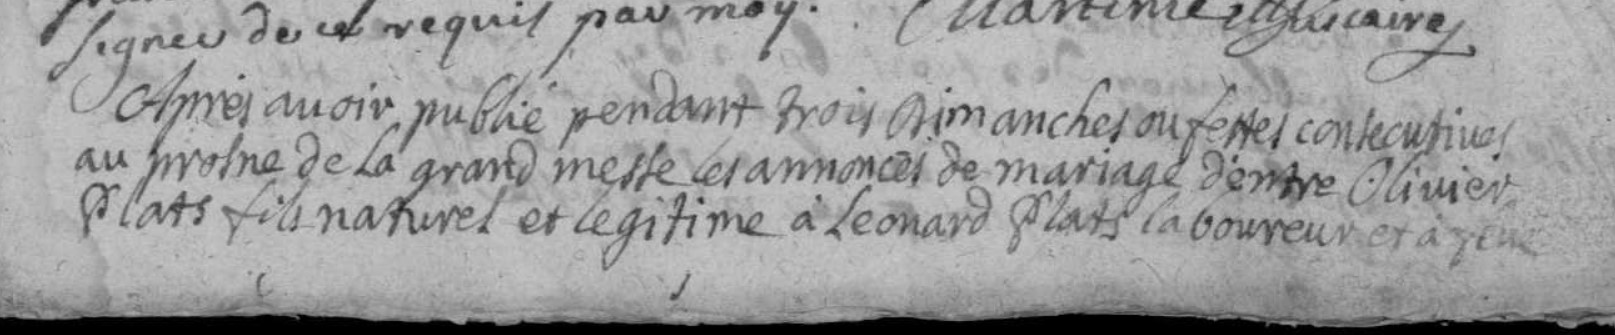 signer de ce requis par moy. Martime vicaire
Apres auoir publié pendant trois Dimanches ou festes consecutives
au prosne de la grand messe les annonces de mariage d'entre Olivier
Plats fils naturel et legitime à Leonard Plats laboureur et à